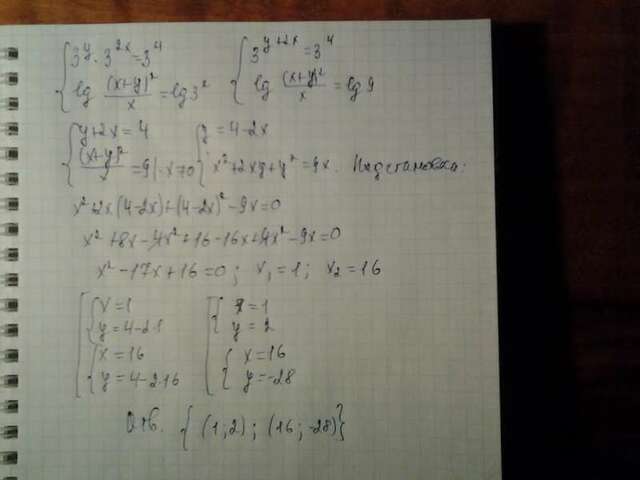 { 3^y · 3^{2x} = 3^4   { 3^{y+2x} = 3^4
{ lg (x+y)²/x = lg 3²   { lg (x+y)²/x = lg 9
{ y+2x = 4   { y = 4-2x
{ (x+y)²/x = 9 | · x≠0   { x² + 2xy + y² = 9x. Подстановка:
x² + 2x(4-2x) + (4-2x)² - 9x = 0
x² + 8x - 4x² + 16 - 16x + 4x² - 9x = 0
x² - 17x + 16 = 0 ; x₁ = 1 ; x₂ = 16
[ { x = 1   [ { x = 1
{ y = 4-2·1   { y = 2
{ x = 16   { x = 16
{ y = 4-2·16   { y = -28
Отв. { (1; 2) ; (16; -28) }